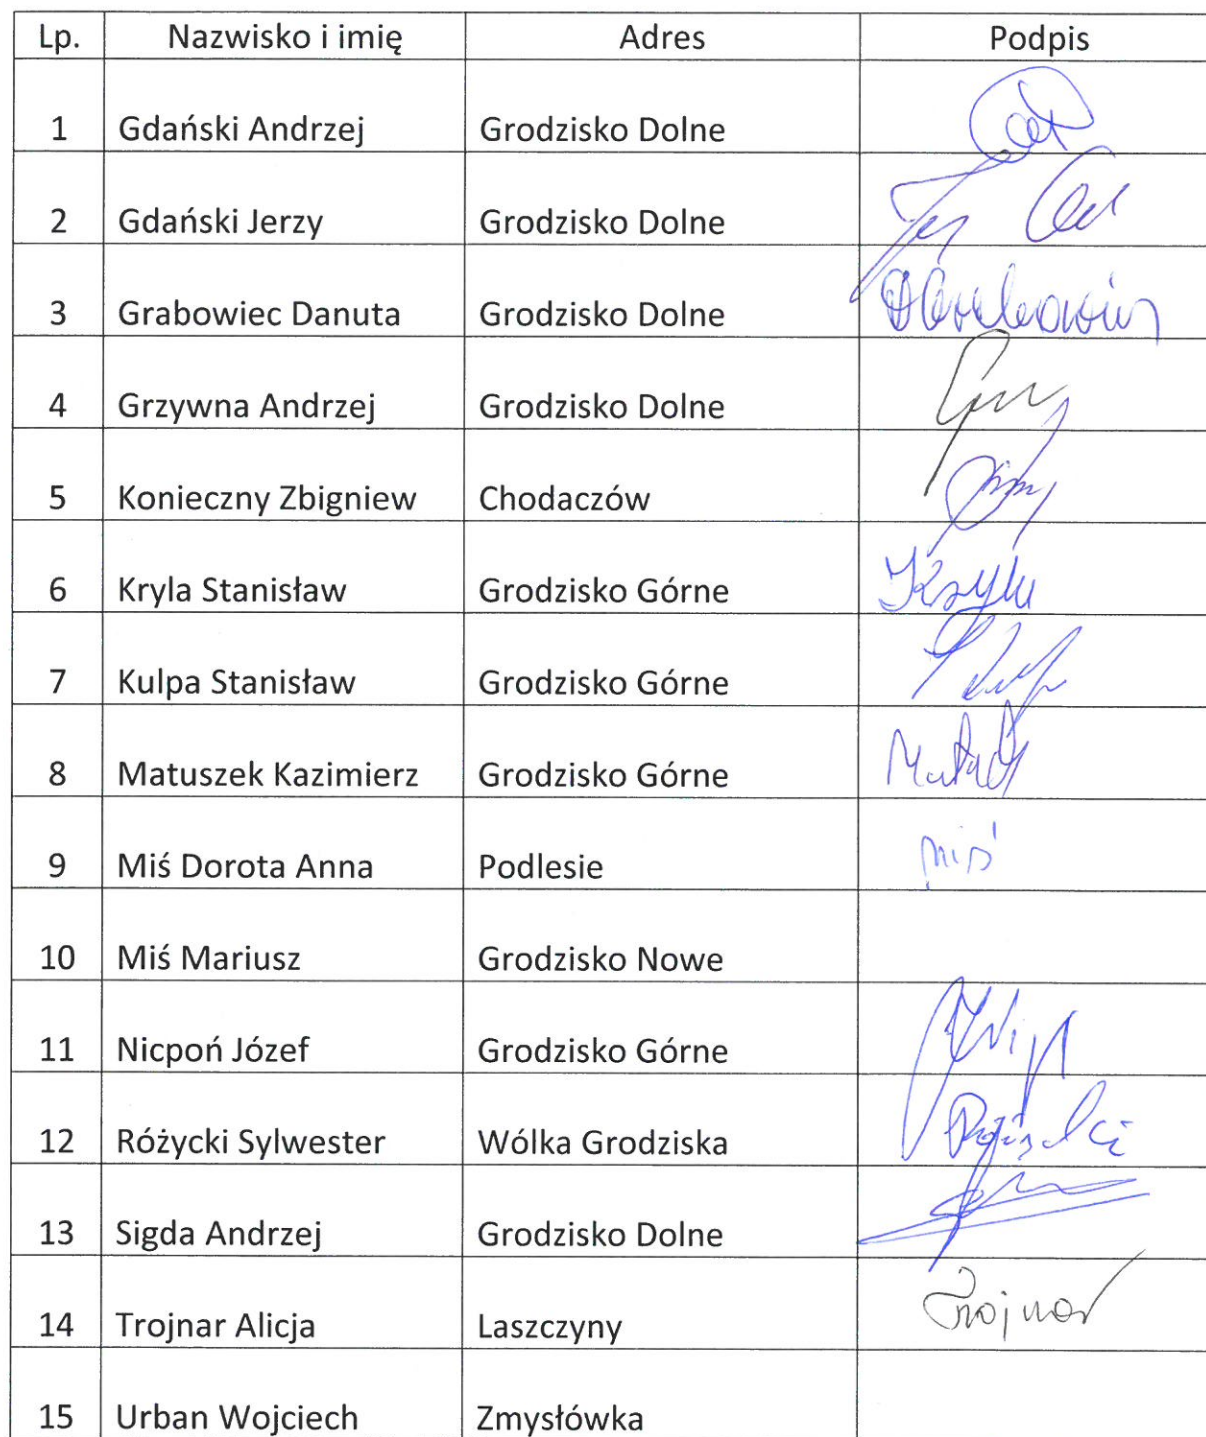 Lp. Nazwisko i imię Adres Podpis
1 Gdański Andrzej Grodzisko Dolne
2 Gdański Jerzy Grodzisko Dolne
3 Grabowiec Danuta Grodzisko Dolne
4 Grzywna Andrzej Grodzisko Dolne
5 Konieczny Zbigniew Chodaczów
6 Kryla Stanisław Grodzisko Górne
7 Kulpa Stanisław Grodzisko Górne
8 Matuszek Kazimierz Grodzisko Górne
9 Miś Dorota Anna Podlesie Miś
10 Miś Mariusz Grodzisko Nowe
11 Nicpoń Józef Grodzisko Górne
12 Różycki Sylwester Wólka Grodziska
13 Sigda Andrzej Grodzisko Dolne
14 Trojnar Alicja Laszczyny Trojnar
15 Urban Wojciech Zmysłówka